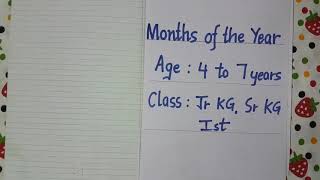 Months of the Year
Age : 4 to 7 years
Class : Jr KG, Sr KG
Ist